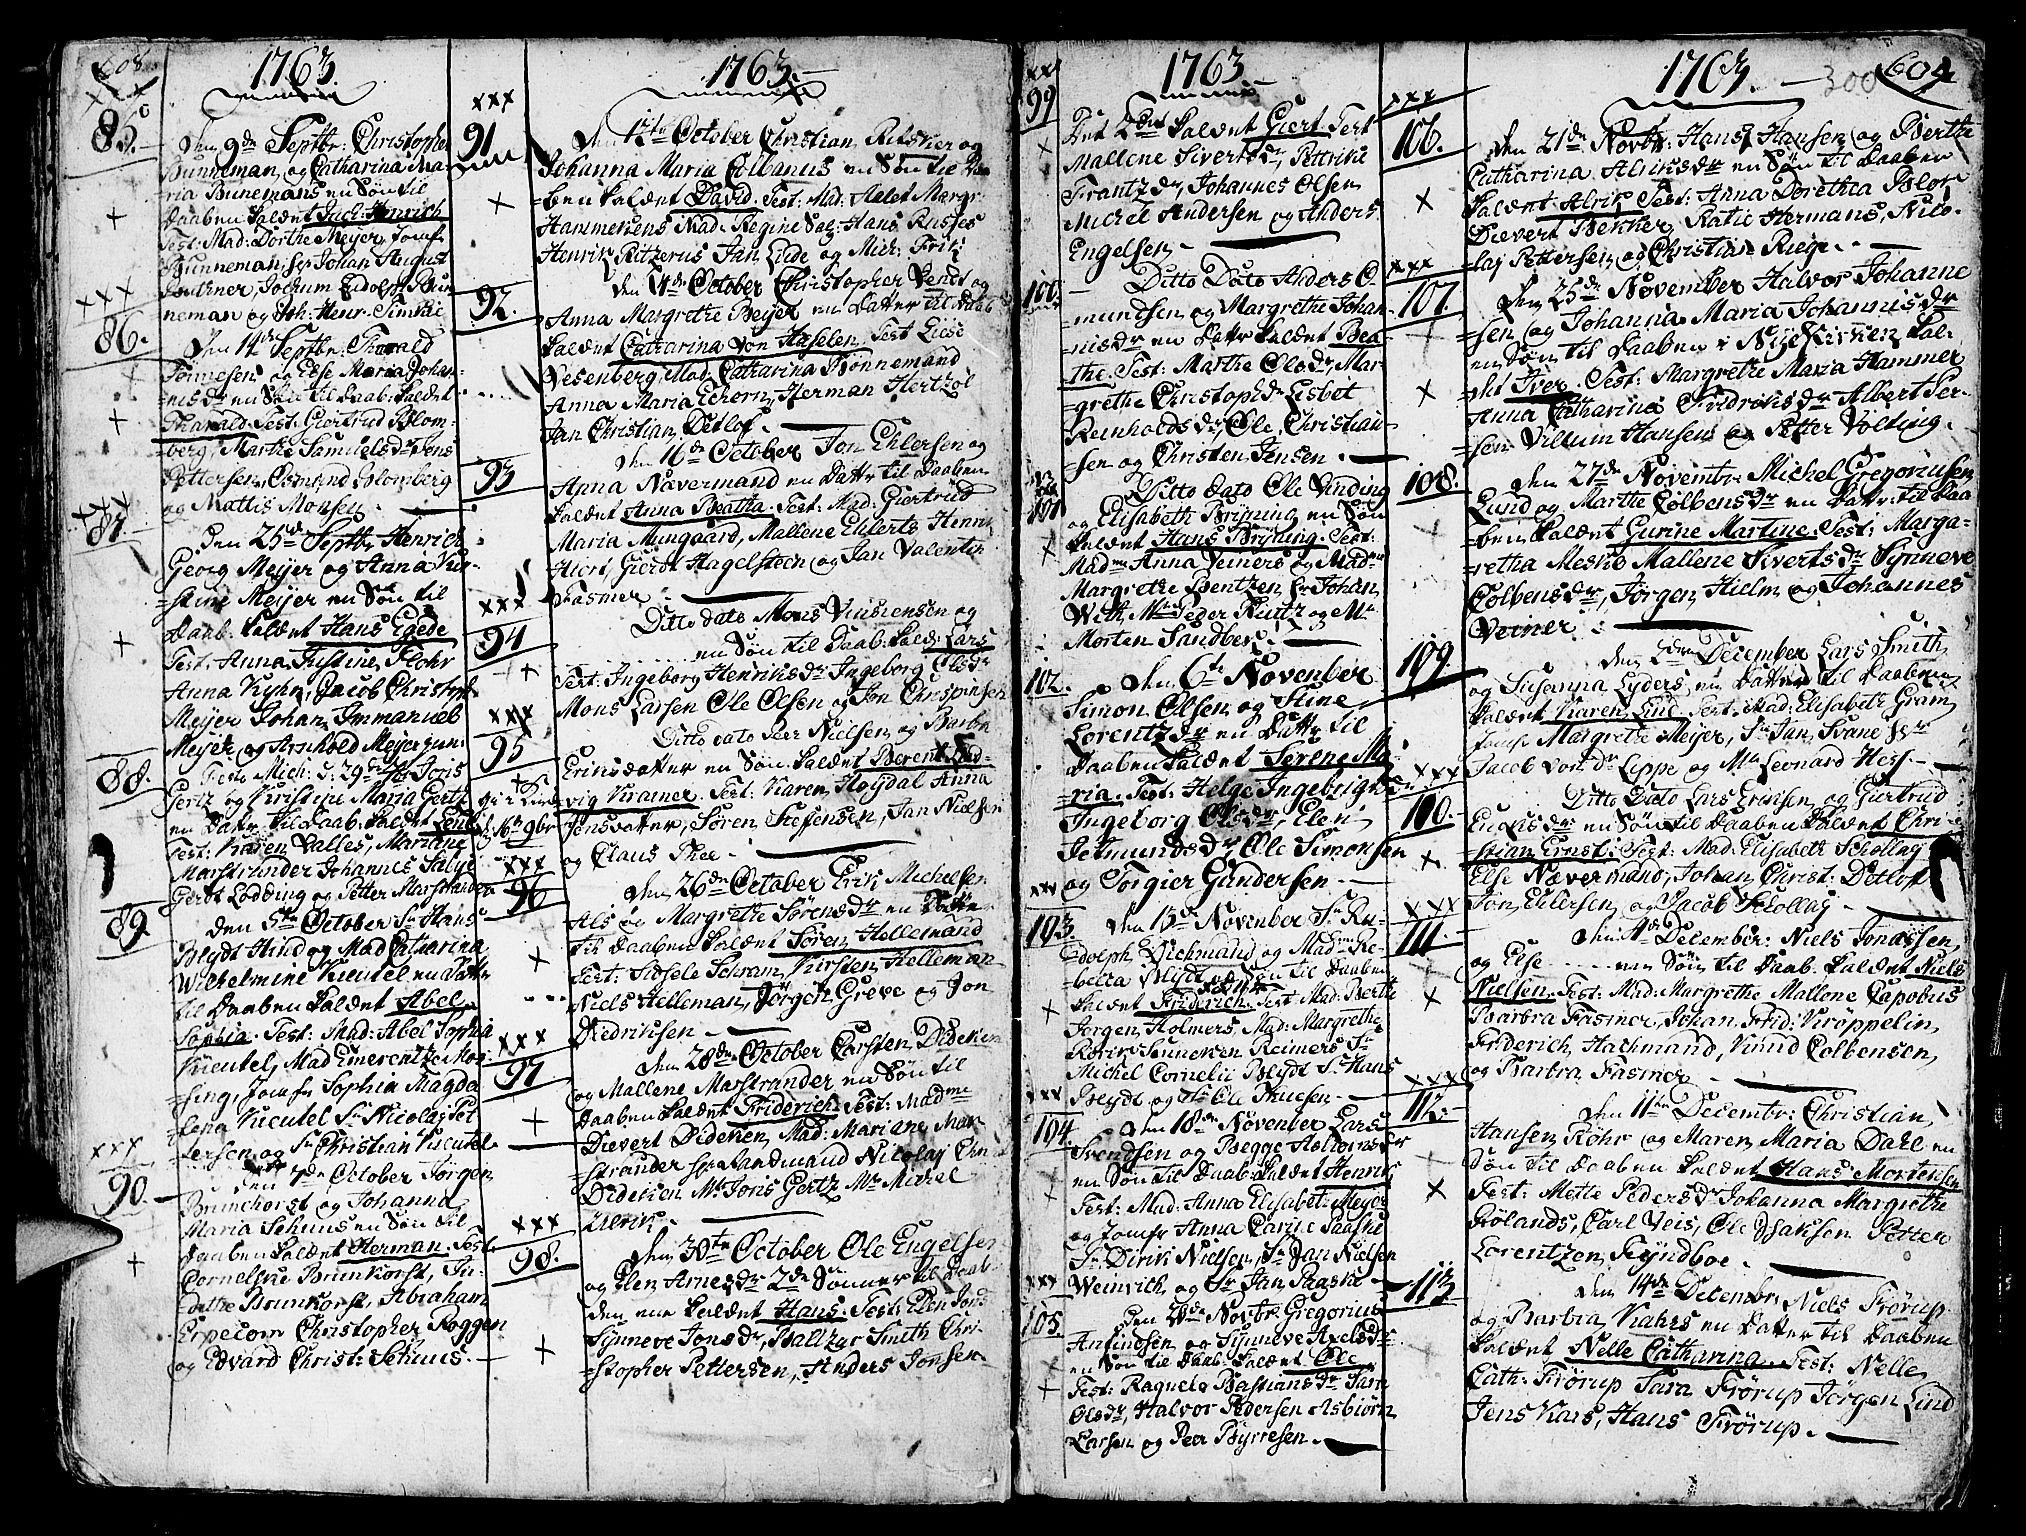 608.
1763.
85.
Den 9de Septbr. Christopher
Bunneman og Catharina Ma-
ria Bunemans en Søn til
Daaben kaldet Jach: Henrich
Test: Mad: Dorthe Meyer, Jomf:
Bunneman, Sr Johan August
Jochum Rudolph Bun-
neman og Joh: Henr:
86.
Den 14de Septbr: Tharald
Tennesen og Else Maria Johan-
nisdr en Søn til Daab: kaldet
Tharald Test: Giertrud Blom-
berg, Marthe Samuelsdr Jens
Pettersen, Osmund Blomberg
og Mattis Monsen.
87.
Den 25de Septbr Henrich
Georg Meijer og Anna Kir-
stine Meijer en Søn til
Daab: kaldet Hans Egede
Test: Anna Justine Flohr
Anna Kyhn, Jacob Christoph
Meijer Johan Immanuel
Meijer og Arnhold Meijer jun:
88.
Festo Mich: d: 29 Joris
Gertz og Kirstine Maria Gertz
en Datter til Daab: kaldet
Test: Karen Valles, Martine
Marstrander Johannes
Gerdt Lodding og Petter Marstrander
89.
Den 5te October Sr Hans
Blydt Hind og Mad Catharina
Wilhelmine Kreutel en Datter
til Daaben kaldet Abel
Sophia. Test: Mad: Abel Sophia
Kreutel, Mad Emerentze Mog
sing, Jomfr Sophia Magda
lena Kreutel Sr Nicolay Pet
tersen og Sr Christian Kreutel
90.
Den 7de October Jørgen
Brunchorst og Johanna
Maria Schuus en Søn til
Daaben kaldet Herman. Test:
Cornelske Brunkorst, Ju-
dithe Brunkorst, Abraham
Erpecom Christopher Roggen
og Edvard Christ: Schuus.
1763.
91
Den 12te October Christian Ritzkier og
Johanna Maria Colbanus en Søn til Da-
ben kaldet David. Test: Mad: Aalet Margr:
Hammekens Mad: Regine Salz: Hans
Henrik Ritzerus Jan Lyde og Mich: Frik
92.
Den 14de October Christopher Vendt og
Anna Margrethe Beijer en Datter til Daab
kaldet Catharina von Hasselen. Test Liese
Vesenberg, Mad: Catharina Bønnemand
Anna Maria Echorn, Herman Hertzol
Jan Christian Detlof.
93
Den 16de October Jon Ehlersen og
Anna Nævermand en Dattr til Daaben
kaldet Anna Beatha. Test: Mad: Giertrud
Maria Mungaard, Mallene Ehlerts Henri
Hiort, Gierdt Hagelsteen og Jan Valentin
Fasmer.
94
Ditto dato Mons Vinsensen og
...... en Søn til Daab: kald: Lars
Test: Ingeborg Henriksdr Ingeborg Olsdr
Mons Larsen Ole Olsen og Jon Chrispinsen
95
Ditto dato Peer Nielsen og Barbra
Erinsdatter en Søn kaldet Berent Lud-
vig Kramer. Test: Karen Høydal Anna
Jensdatter, Søren Steffensen, Jan Nielsen
og Claus Thee.
d. 16de 9br
96
Den 26de October Erik Michelsen
Als og Margrethe Sørensdr en
til Daaben kaldet Søren Hellemand
Test: Sidsele Schram, Kirsten Helleman
Niels Helleman, Jørgen Greve og Jon
Diedriksen
97
Den 28de October Carsten Dedeken
og Mallene Marstrander en Søn til
Daaben kaldet Friderich. Test: Madme
Dievert Dideken, Mad: Mariane Mar-
strander Sr Landmand Nicolay Chr
Dideken Mr Joris Gertz Mr Michel
Ulrik.
98.
Den 30te October Ole Engelsen
og Elen Arnesdr 2de Sønner til Daab-
den ene kaldet Hans. Test: Elen Jons:
Synneve Jonsdr, Baltzar Smith Chri-
stopher Pettersen, Anders Jonsen
1763.
99
Det 2det kaldet Giert. Test
Mallene Sivertsdr, Pettrike
Frantzdr, Johannes Olsen
Michel Andersen og Anders
Engelsen
100.
Ditto Dato Anders O-
mundsen og Margrethe Johan-
nisdr en Dattr kaldet Bea-
the. Test: Marthe Olsdr, Mar-
grethe Christophdr Lisbet
Reinholdsdr, Ole Christian-
sen og Christen Jensen
101
Ditto dato Ole Vinding
og Elisabeth Bryning en Søn
kaldet Hans Bryning. Test:
Madme Anna Veiners og Mad
Margrethe Lentzen, Sr Johan
With, Mr Peder Rintz og Mr
Morten Sandberg.
102.
Den 6te November
Simon Olsen og Stine
Lorentzdr en Dattr til
Daaben kaldet Serene Ma-
ria. Test: Helge Ingebrigts
Ingeborg Olsdr, Elen
Jetmundsdr, Ole Simonsen
og Torgier Gundersen
103
Den 15de November Sr Ru-
dolph Wichmand og Madme Re-
becca Blydt en Søn til Daaben
kaldet Friderich. Test Mad: Berthe
Jørgen Holmers Mad: Margrethe
Reimers Sr
Michel Cornelii Blydt Sr Hans
Preydt og Ole Thuesen
104.
Den 18de November Lars
Svendsen og Begge Haldorsdr
en Søn til Daab: kaldet Henrik
Test: Mad: Anna Elisabet: Meyer
og Jomfr Anna Carine Paaske
Sr Dirik Nielsen, Sr Jan Nielsen
Weinrich og Sr Jan Paaske
105.
Den 20de Novbr: Gregorius
Anfindsen og Synneve Axelsdr
en Søn til Daab: kaldet Ole.
Test: Raquele Bastiansdr Sara
Olsdr, Halvor Pedersen Asbiørn
Larsen og Peer Byrresen.
1763. 300 609
106.
Den 21de Novbr: Hans Hansen og Berthe
Catharina Alriksdr en Søn til Daaben
kaldet Alrik Test: Anna Dorethea Blom
Dievert Bekker, Katie Hermans, Nico-
laj Pettersen og Christian Riege.
107.
Den 25de November Halvor Johanne
sen og Johanna Maria Johannisdr
en Søn til Daaben i Nye Kirken kal-
det Iver. Test: Margrethe Maria Hammer
Anna Catharina Fridriksdr Albert Per-
sen Villum Hansen og Petter Volding.
108.
Den 27de Novembr: Michel Gregoriusen
Lund og Marthe Colbensdr en Dattr: til Daa-
ben kaldet Gurine Martine. Test: Marga-
retha Mesko Mallene Sivertsdr Synneve
Colbensdr, Jørgen Hielm og Johannes
Veiner.
109.
Den 2den December Lars Smith
og Susanna Lyders en Datter til Daaben
kaldet Karen Lind. Test: Mad: Elisabeth Gram
Jomfr Margrethe Meijer, Sr Jan Svane Sr
Jacob von Dr Lippe og Mr Leonard Hess.
110.
Ditto Dato Lars Eriksen og Giertrud
Enoksdr: en Søn til Daaben kaldet Chri-
stian Ernst. Test: Mad: Elisabeth Schollay
Else Nævermand, Johan Christ: Detlof
Jon Ehlersen og Jacob Skollay
111.
Den 4de December: Niels Jonassen
og Else ...... en Søn til Daab: kaldet Niels
Nielsen. Test: Mad: Margrethe Mallene Capobus
Barbra Fasmer, Johan Frid: Krøppelin
Friderich Hachmand, Knud Colbensen
og Barbra Fasmer
112.
Den 11te Decembr: Christian
Hansen Røhr og Maren Maria Dahl en
Søn til Daaben kaldet Hans Mortensen
Test: Mette Pedersdr Johanna Margrethe
Rølands, Carl Veis, Ole Isaksen Petter
Lorentzen Fryndboe.
113
Den 14de Decembr: Niels Frørup
og Barbra Kahrs en Datter til Daaben
kaldet Nelle Catharina. Test: Nelle
Cath: Frørup Sara Frørup Jørgen Lind
Jens Kars, Hans Frørup.